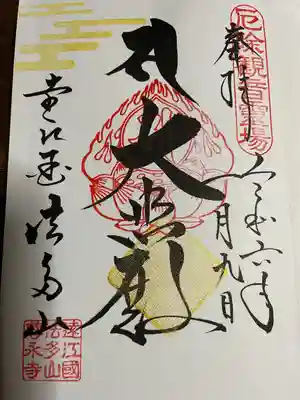 厄除観音霊場
奉拝
令和六年
月九日
大悲殿
遠江国法多山
遠江國
法多山
尊永寺